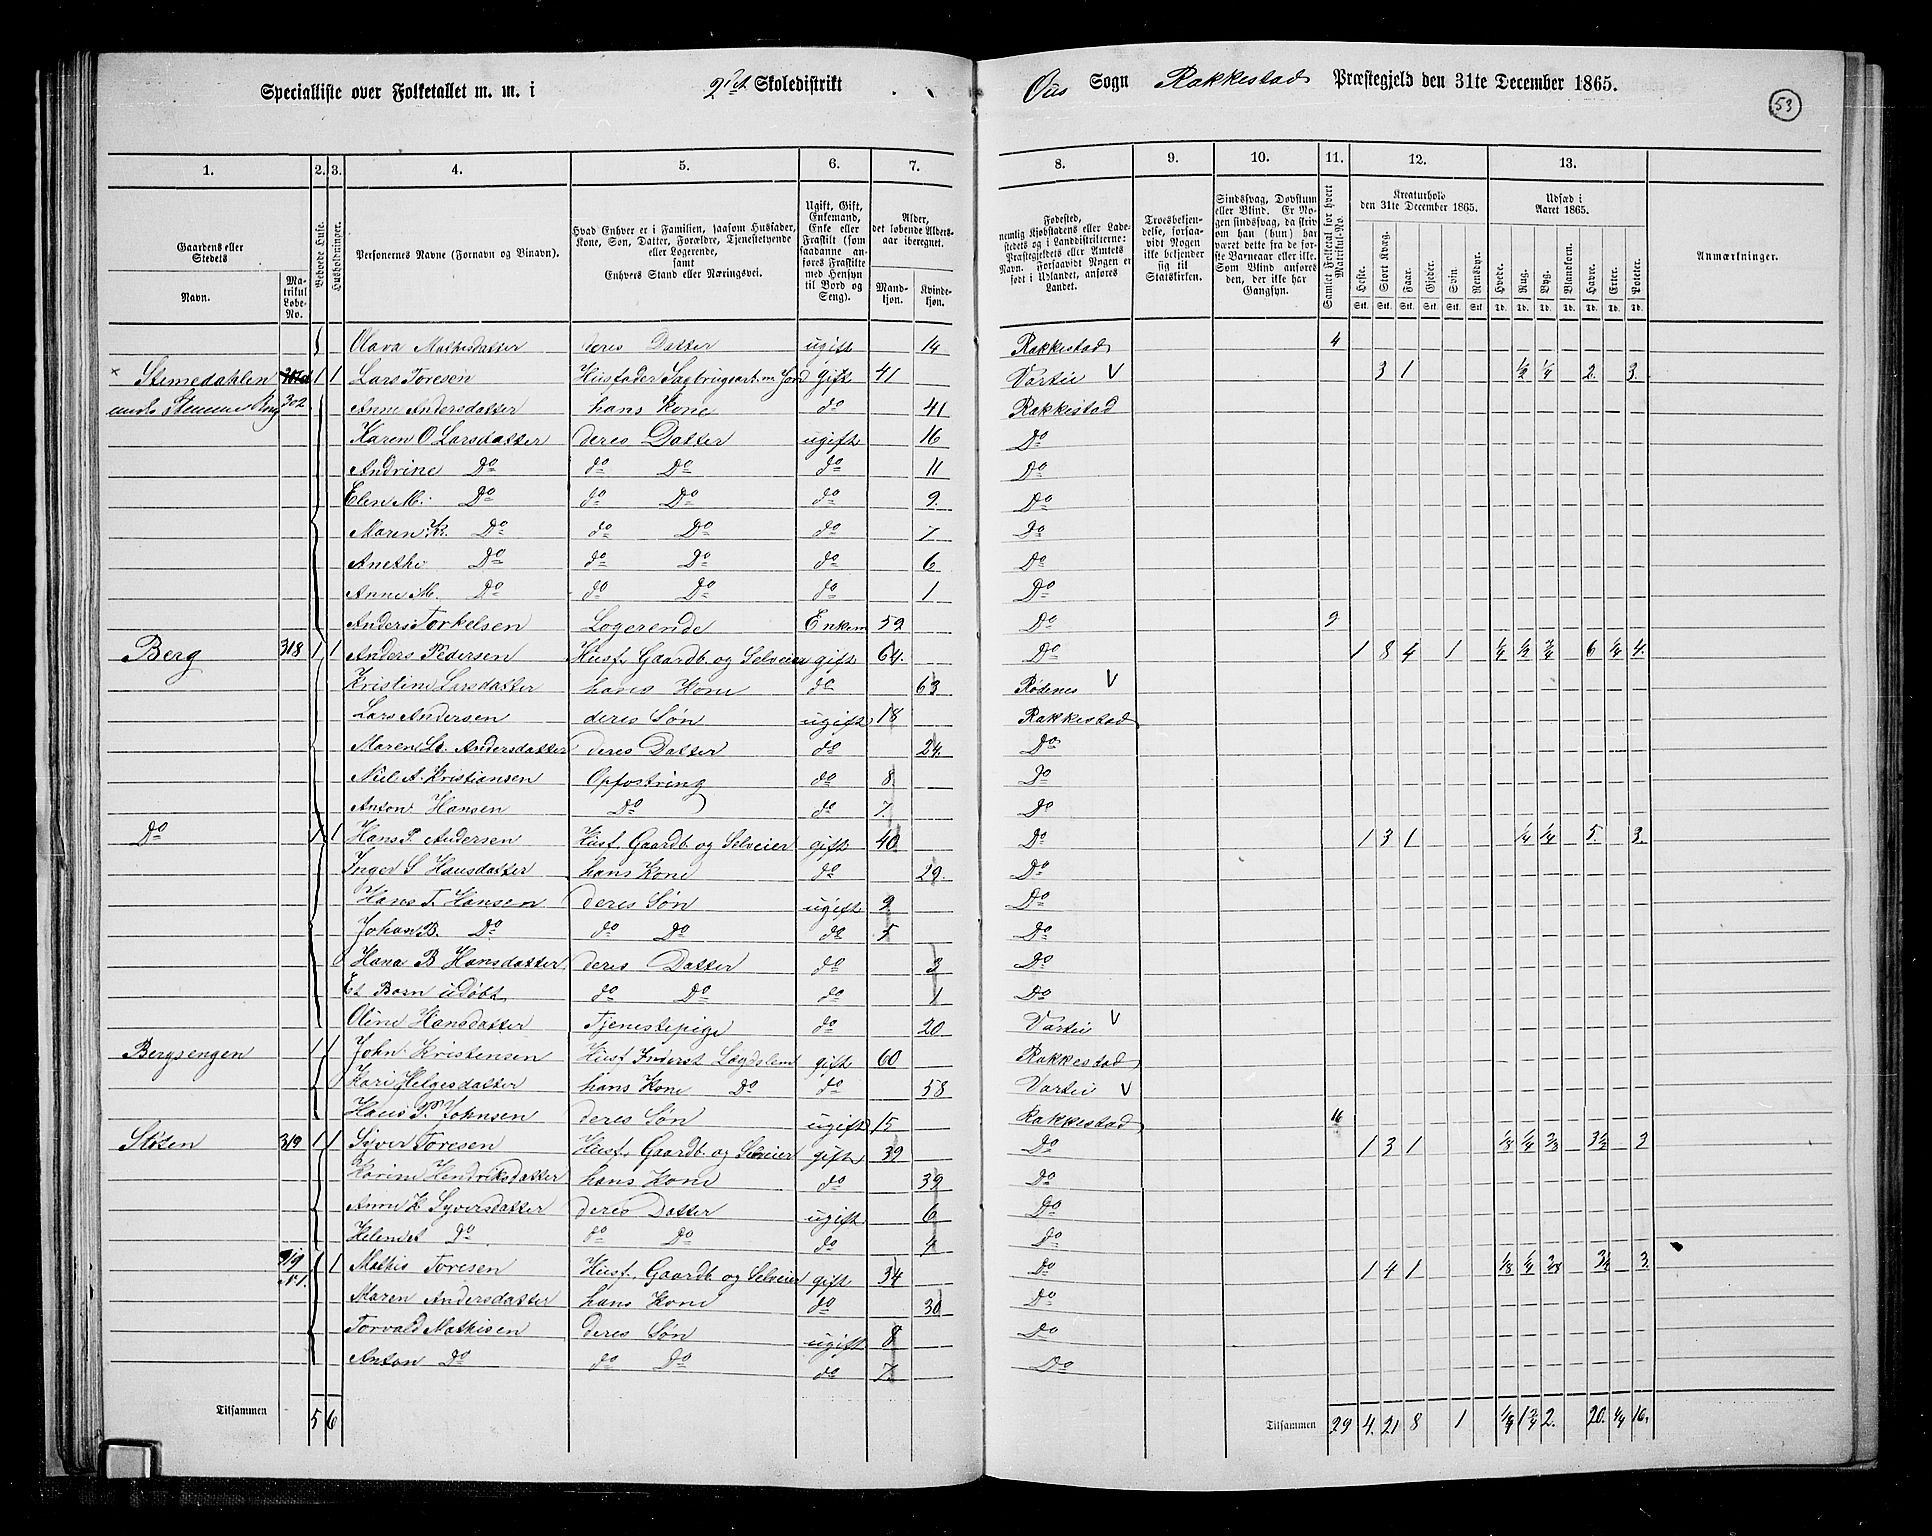 Specialliste over Folketallet m. m. i 2det Skoledistrikt Øus Sogn Rakkestad Præstegjeld den 31te December 1865.
53
1. 2. 3. 4. 5. 6. 7. 8. 9. 10. 11. 12. 13.
Gaardens eller Stedets Navn.
Matrikul Løbe-No.
Beboede Huse.
Husholdninger.
Personernes Navne (Fornavn og Binavn).
Hvad Enhver er i Familien, saasom Husfader, Kone, Søn, Datter, Forældre, Tjenestetyende eller Logerende, samt Enhvers Stand eller Næringsvei.
Ugift, Gift, Enkemand, Enke eller Fraskilt (som saadanne anføres Fraskilte med Hensyn til Bord og Seng).
Alder, det løbende Aldersaar iberegnet.
Mandkjøn.
Kvindekjøn.
Fødested, nemlig Kjøbstadens eller Ladestedets og i Landdistrikterne: Præstegjeldets eller Amtets Navn. Forsaavidt Nogen er født i Udlandet, anføres Landet.
Troesbekjendelse, forsaavidt Nogen ikke bekjender sig til Statskirken.
Sindssvag, Døvstum eller Blind. Er Nogen sindssvag, da skrives om han (hun) har været dette fra de første Barneaar eller ikke. Som Blind anføres den, der ikke har Gangsyn.
Samlet Folketal for hvert Matrikul-No.
Kreaturhold den 31te December 1865.
Heste. Stort Kvæg. Faar. Gjeder. Svin. Rensdyr.
Stk. Stk. Stk. Stk. Stk. Stk.
Udsæd i Aaret 1865.
Hvede. Rug. Byg. Blandkorn. Havre. Erter. Poteter.
Td. Td. Td. Td. Td. Td. Td.
Anmærkninger.
Olava Mathisdatter deres Datter ugift 14 Rakkestad 4
× Stemedahlen 1 1 Lars Toresen Husfader Sagbrugsarb. m Jord gift 41 Vartei V 3 1 ½ ¼ 2. 3.
302 Anne Andersdatter hans Kone do 41 Rakkestad
Karen O. Larsdatter deres Datter ugift 16 Do
Andrine Do do Do do 11 Do
Elen M. Do do Do do 9. Do
Maren K. Do do Do do 7 Do
Anethe Do do Do do 6 Do
Anne M. Do do Do do 1 Do
Anders Torkelsen Logerende Enkem 59 Do 9
Berg 318 1 1 Anders Pedersen Husf. Gaardb. og Selveier gift 64. Do 1 8 4 1 ¼ ½ ¾ 6 ¼ 4.
Kristine Larsdatter hans Kone do 63 Rødenes V
Lars Andersen deres Søn ugift 18 Rakkestad
Maren L. Andersdatter deres Datter do 24. Do
Nil A. Kristiansen Opfostring do 8. Do
Anton Hansen Do do 7. Do
Do 1 1 Hans P. Andersen Husf. Gaardb. og Selveier gift 40 Do 1 3 1 ¼ ¼ 5. 3.
Inger S Hansdatter hans Kone do 29. Do
Hans T. Hansen deres Søn ugift 9 Do
Johan B. Do do Do do 5 Do
Hana B Hansdatter deres Datter do 3 Do
Et Barn udøbt do Do do 1 Do
Oline Hansdatter Tjenestepige do 20 Vartei V
Bergsengen 1 1 John Kristensen Husf Inderst Lægdslem gift 60 Rakkestad
Kari Helgesdatter hans Kone Do do 58 Vartei V
Hans P. Johnsen deres Søn ugift 15 Rakkestad 16
Støten 319 1 1 Syver Toresen Husf. Gaardb. og Selveier gift 39 Do 1 3 1 ⅛ ¼ 3½ 3
Karine Hendriksdatter hans Kone do 39 Do
Anne K Syversdatter deres Datter ugift 6 Do
Helene Do do Do do 4 Do
319 1 1 Mathis Toresen Husf. Gaardb og Selveier gift 34 Do 1 4 1 ⅛ ¼ ⅜ 3½ 3.
Maren Andersdatter hans Kone do 30 Do
Torvald Mathisen deres Søn ugift 8 Do
Anton Do do Do do 7. Do
Tilsammen 5 6 Tilsammen 29 4. 21 8 1 2. 20. ¼ 16.